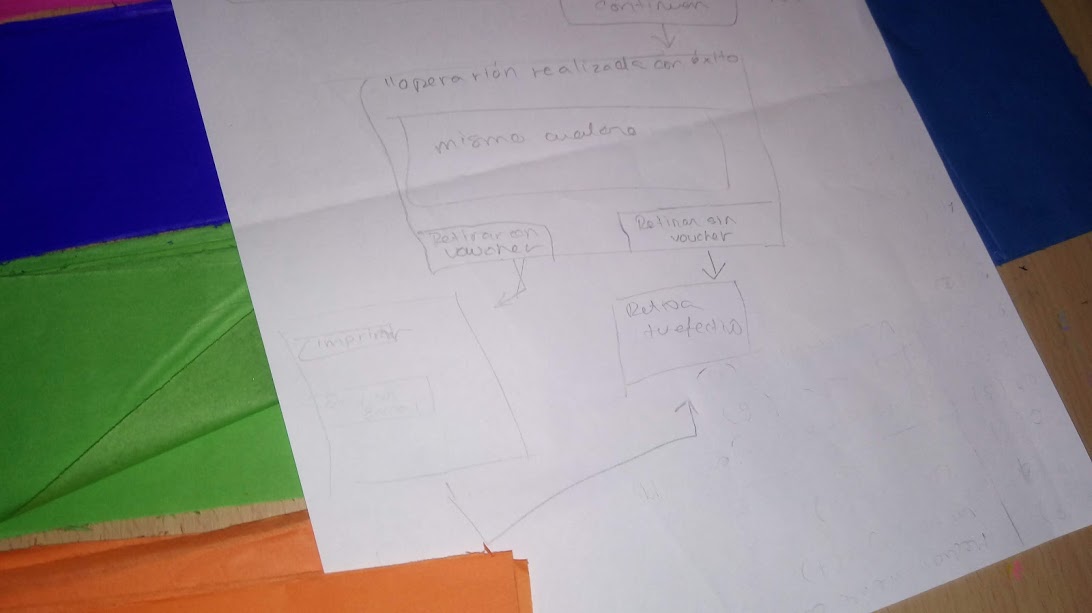 continuar
"operación realizada con éxito
mismo cuadro
Retirar con
voucher
Retirar sin
voucher
Retira
tu efectivo
imprimir